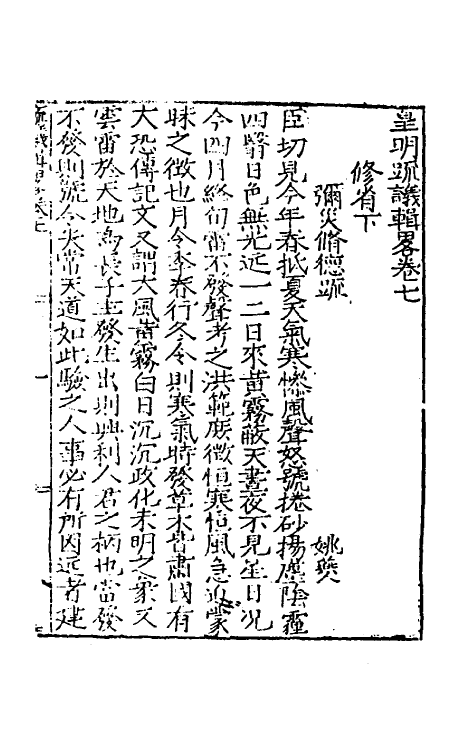 皇明疏議輯畧卷七
修省下
彌災脩德疏　姚夔
臣切見今年春抵夏天氣寒慘風聲怒號捲砂揚塵陰霾
四翳日色無光近一二日來黄霧蔽天晝夜不見星日况
今四月終旬雷不發聲考之洪範庶徴恒寒恒風急迫蒙
昧之徴也月令季春行冬令則寒氣時發草木皆肅國有
大恐傳記文又謂大風黄霧白日沉沉政化未明之象又
雲雷於天地為長子主發生出則興利人君之柄也當發
不發則號令失常天道如此驗之人事必有所因近者建